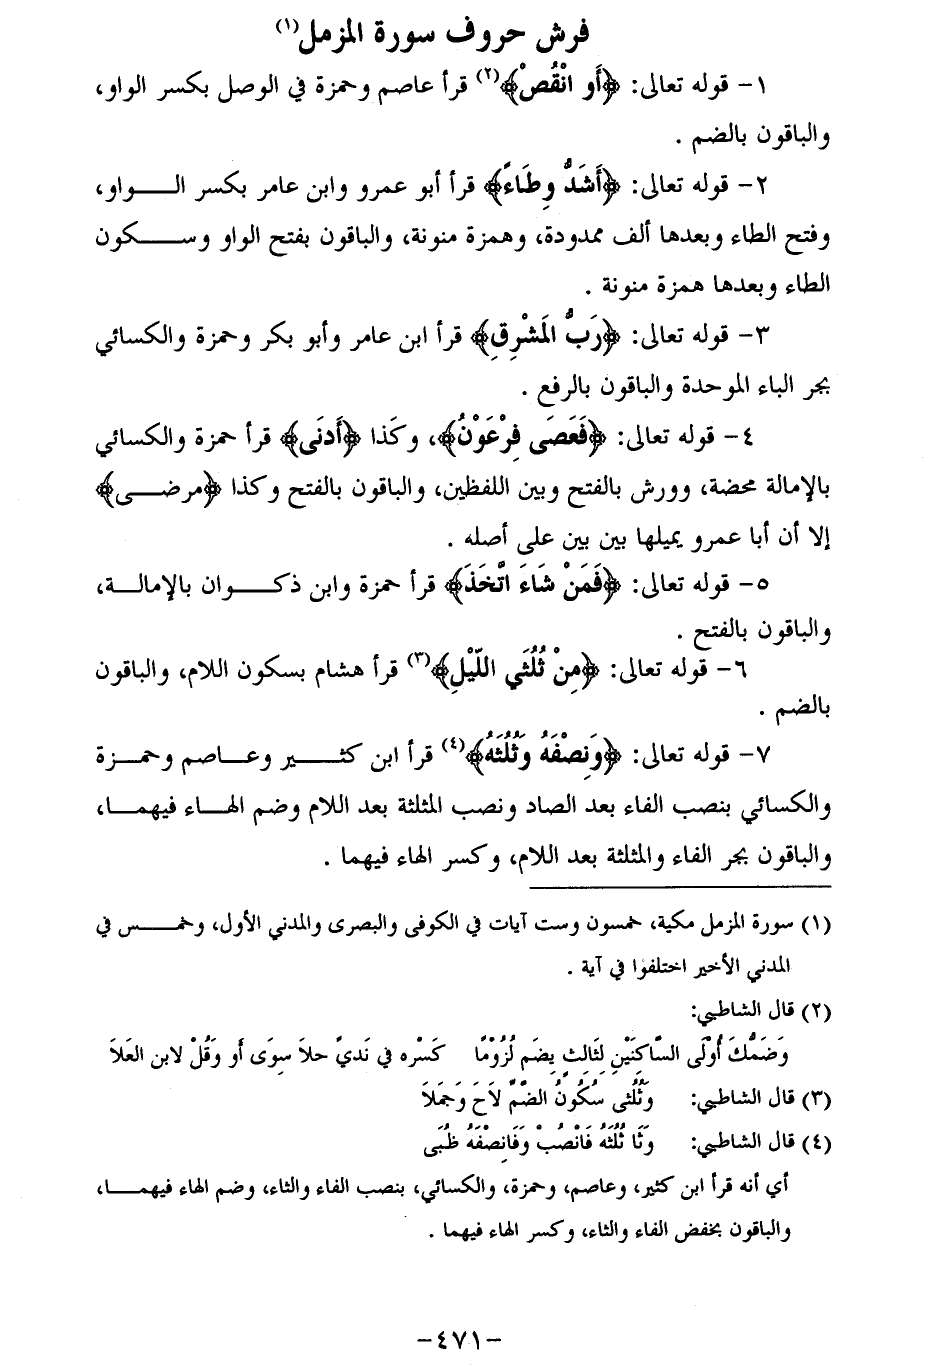 فرش حروف سورة المزمل(١)
١- قوله تعالى: ﴿أَو انْقُصْ﴾(٢) قرأ عاصم وحمزة في الوصل بكسر الواو،
والباقون بالضم .
٢- قوله تعالى: ﴿أَشَدُّ وِطَاءً﴾ قرأ أبو عمرو وابن عامر بكسر الـــواو،
وفتح الطاء وبعدها ألف ممدودة، وهمزة منونة، والباقون بفتح الواو وســـكون
الطاء وبعدها همزة منونة .
٣- قوله تعالى: ﴿رَبُّ المَشْرِقِ﴾ قرأ ابن عامر وأبو بكر وحمزة والكسائي
بجر الباء الموحدة والباقون بالرفع .
٤- قوله تعالى: ﴿فَعَصَى فِرْعَوْنُ﴾، وكَذا ﴿أَدنَى﴾ قرأ حمزة والكسائي
بالإمالة محضة، وورش بالفتح وبين اللفظين، والباقون بالفتح وكذا ﴿مرضـــى﴾
إلا أن أبا عمرو يميلها بين بين على أصله .
٥- قوله تعالى: ﴿فَمَنْ شَاءَ اتَّخَذَ﴾ قرأ حمزة وابن ذكـــوان بالإمالــة،
والباقون بالفتح .
٦- قوله تعالى: ﴿مِنْ ثُلُثَي اللَّيْلِ﴾(٣) قرأ هشام بسكون اللام، والباقون
بالضم .
٧- قوله تعالى: ﴿وَنِصْفَهُ وَثُلُثَهُ﴾(٤) قرأ ابن كثـــير وعــاصم وحمــزة
والكسائي بنصب الفاء بعد الصاد ونصب المثلثة بعد اللام وضم الهــاء فيهمــا،
والباقون بجر الفاء والمثلثة بعد اللام، وكسر الهاء فيهما .
(١) سورة المزمل مكية، خمسون وست آيات في الكوفى والبصرى والمدني الأول، وخمـــس في
المدني الأخير اختلفوا في آية .
(٢) قال الشاطبي:
وَضَمُّكَ أُوْلَى السَّاكِنَيْنِ لِثَالِثٍ يِضَم لُزُوْمًا كَسْره في نَديً حلاَ سِوَى أو وَقُلْ لابن العَلاَ
(٣) قال الشاطبي: وَثُلْثى سُكُونُ الضَّمِّ لاَحَ وَجَمَلاَ
(٤) قال الشاطبي: وَثَا ثُلُثَهُ فَانْصُبْ وَفَانِصْفَهُ ظُبَى
أي أنه قرأ ابن كثير، وعاصم، وحمزة، والكسائي، بنصب الفاء والثاء، وضم الهاء فيهمــا،
والباقون بخفض الفاء والثاء، وكسر الهاء فيهما .
-٤٧١-